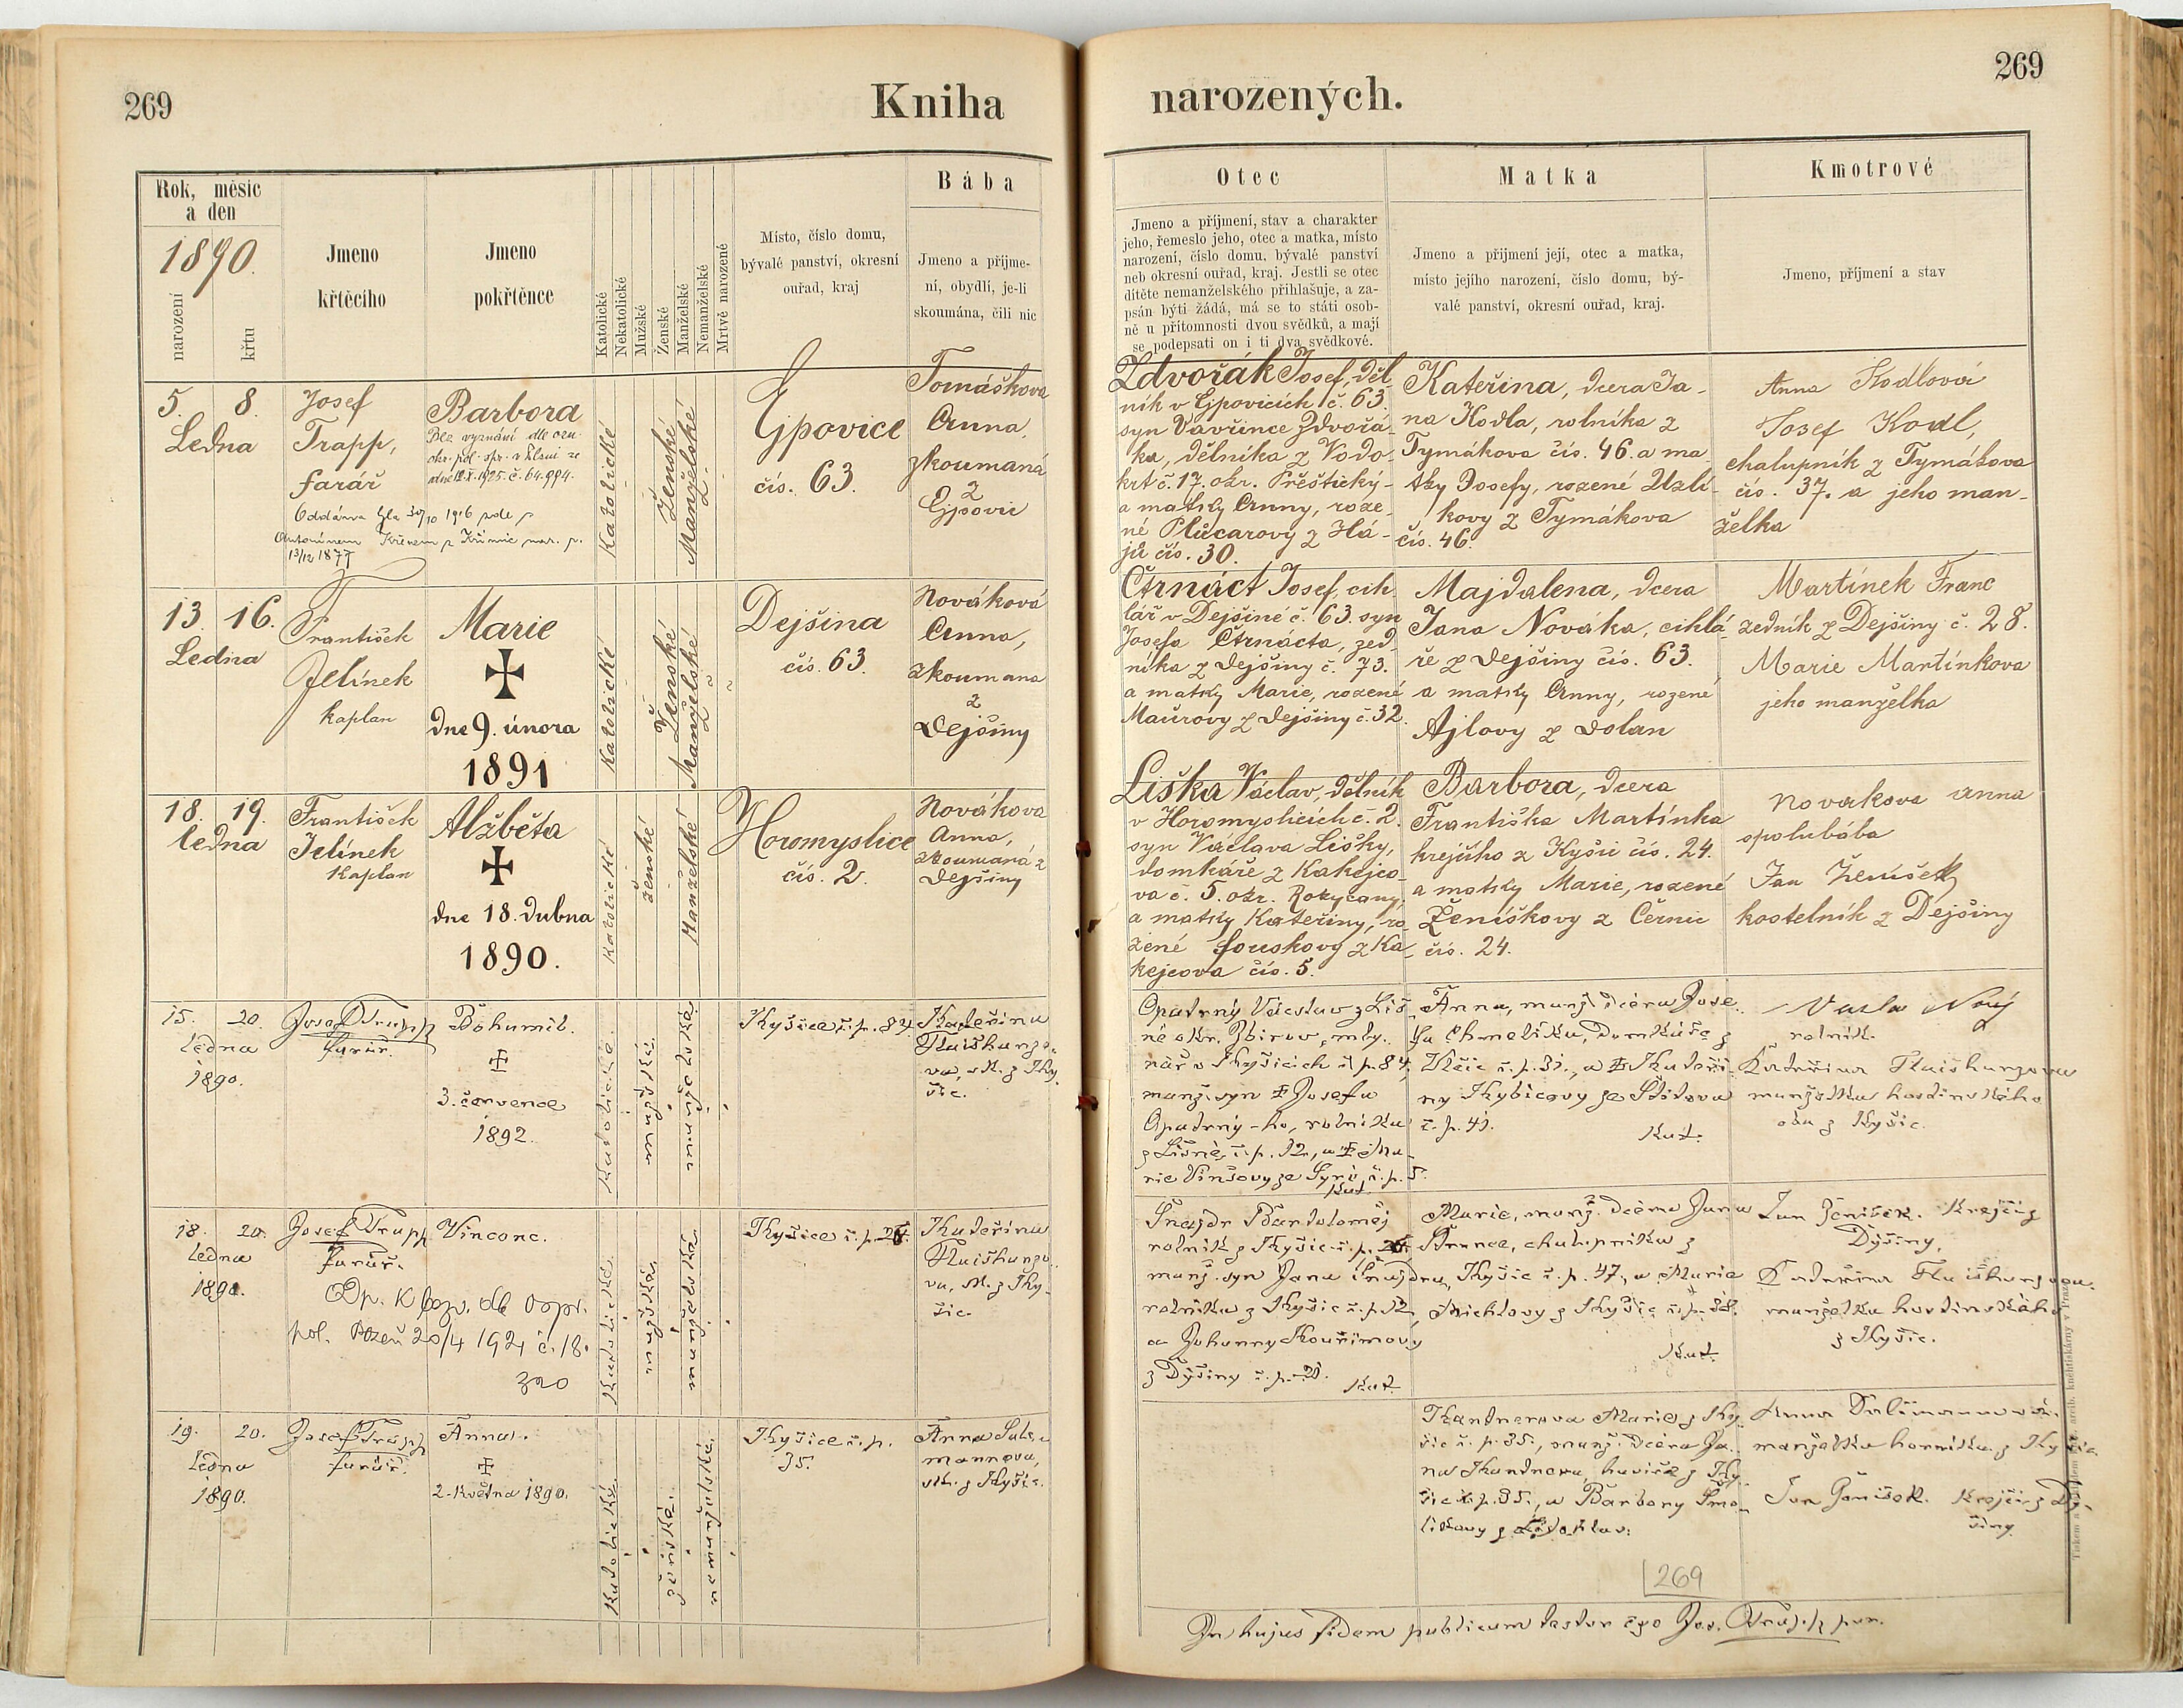 269
Kniha
narozených.
269
Rok, měsíc
a den
1890.
narození
křtu
Jmeno
křtěcího
Jmeno
pokřtěnce
Katolické
Nekatolické
Mužské
Ženské
Manželské
Nemanželské
Mrtvě narozené
Místo, číslo domu,
bývalé panství, okresní
ouřad, kraj
Bába
Jmeno a příjme-
ní, obydlí, je-li
skoumána, čili nic
Otec
Jmeno a příjmení, stav a charakter
jeho, řemeslo jeho, otec a matka, místo
narození, číslo domu, bývalé panství
neb okresní ouřad, kraj. Jestli se otec
dítěte nemanželského přihlašuje, a za-
psán býti žádá, má se to státi osob-
ně u přítomnosti dvou svědků, a mají
se podepsati on i ti dva svědkové.
Matka
Jmeno a příjmení její, otec a matka,
místo jejího narození, číslo domu, bý-
valé panství, okresní ouřad, kraj.
Kmotrové
Jmeno, příjmení a stav
5. 8.
Ledna
Josef
Trapp,
farář
Barbora
Bez vyznání dle ozn.
okr. pol. spr. v Plzni ze
dne 12.X.1925. č. 64.994.
Oddána dle 30/10 1916 zde s
Antonínem Křenem z Křimic nar. p.
13/12 1877
Katolické
Ženské
Manželské
Ejpovice
čís. 63.
Tomáškova
Anna,
zkoumaná
z
Ejpovic
Zdvořák Josef, děl
ník v Ejpovicích č. 63.
syn Vavřince Zdvořá-
ka, dělníka z Vodo-
krt č. 17. okr. Přeštický-
a matky Anny, roze-
né Plucarovy z Há-
jů čís. 30.
Kateřina, dcera Ja-
na Kodla, rolníka z
Tymákova čís. 46. a ma-
tky Josefy, rozené Uzlí-
kovy z Tymákova
čís. 46.
Anna Kodlová
Josef Kodl,
chalupník z Tymákova
čís. 37. a jeho man-
želka
13. 16.
Ledna
František
Jelínek
kaplan
Marie
dne 9. února
1891
Katolické
Ženské
Manželské
Dejšina
čís. 63.
Nováková
Anna,
zkoumana
z
Dejšiny
Čtrnáct Josef, cih
lář v Dejšině č. 63. syn
Josefa Čtrnácta, zed-
níka z Dejšiny č. 73.
a matky Marie, rozené
Maurovy z Dejšiny č. 32.
Majdalena, dcera
Jana Nováka, cihlá-
ře z Dejšiny čís. 63.
a matky Anny, rozené
Ajlovy z Dolan
Martínek Franc
zedník z Dejšiny č. 28.
Marie Martínkova
jeho manželka
18. 19.
ledna
František
Jelínek
Kaplan
Alžběta
dne 18. dubna
1890.
Katolické
ženské
Manželské
Horomyslice
čís. 2.
Novákova
Anna,
zkoumaná z
Dejšiny
Liška Václav, dělník
v Horomyslicích č. 2.
syn Václava Lišky,
domkáře z Kakejco-
va č. 5. okr. Rokycany,
a matky Kateřiny, ro-
zené Souskovy z Ka-
kejcova čís. 5.
Barbora, dcera
Františka Martínka
krejčího z Kyšic čís. 24.
a matky Marie, rozené
Ženíškovy z Černic
čís. 24.
Novakova Anna
spolubába
Jan Ženíšek
kostelník z Dejšiny
15. 20.
ledna
1890.
Josef Trapp
farář.
Bohumil.
3. července
1892.
Katolické.
mužské.
manželské
Kyšice č. p. 84
Kateřina
Flaišhanzo-
va, z Ky-
šic.
Opatrný Václav z Liš-
né okr. Zbirov, mly-
nář v Kyšicích č. p. 84,
manž. syn Josefa
Opatrný-ho, rolníka
z Lišné č. p. 12., a Ma-
rie Vinšovy ze Syré č. p. 5.
Kat.
Anna, manž. dcera Jose-
fa Chmelíka, domkáře z
Klčic č. p. 31., a Kateři-
ny Kybicovy ze Štítova
č. p. 41.
Kat.
Václav Nový
rolník.
Kateřina Flaishanzova
manželka hostinského
oba z Kyšic.
18. 20.
ledna
1890.
Josef Trapp
farář.
Vincenc.
pol. Plzeň 20/4 1921 č. 18.
320
Katolické.
mužské.
manželské
Kyšice č. p. 26.
Kateřina
Flaišhanzo-
va, z Ky-
šic.
Šnajdr Bartoloměj
rolník z Kyšic č. p. 26,
manž. syn Jana Šnajdra,
rolníka z Kyšic č. p. 12,
a Johanny Kouřimovy
z Dýšiny č. p. 21.
Kat.
Marie, manž. dcera Jana
Brance, chalupníka z
Kyšic č. p. 47., a Marie
Michlovy z Kyšic č. p. 38.
Kat.
Jan Ženíšek. Krejčí z
Dýšiny.
Kateřina Flaišhanzova.
manželka hostinského
z Kyšic.
19. 20.
ledna
1890.
Josef Trapp
farář.
Anna.
2. května 1890.
Katolické
ženské.
nemanželské.
Kyšice č. p.
35.
Anna Sale-
mannova,
z Kyšic.
Kandnerova Marie z Ky-
šic č. p. 35., manž. dcera Ja-
na Kandnera, havíře z Ky-
šic č. p. 35., a Barbory Smo-
líkovy z
Anna
manželka horníka z Kyšic
Jan Ženíšek. Krejčí z Dý-
šiny.
269
In hujus fidem publicam testor ego Jos. Trapp par.